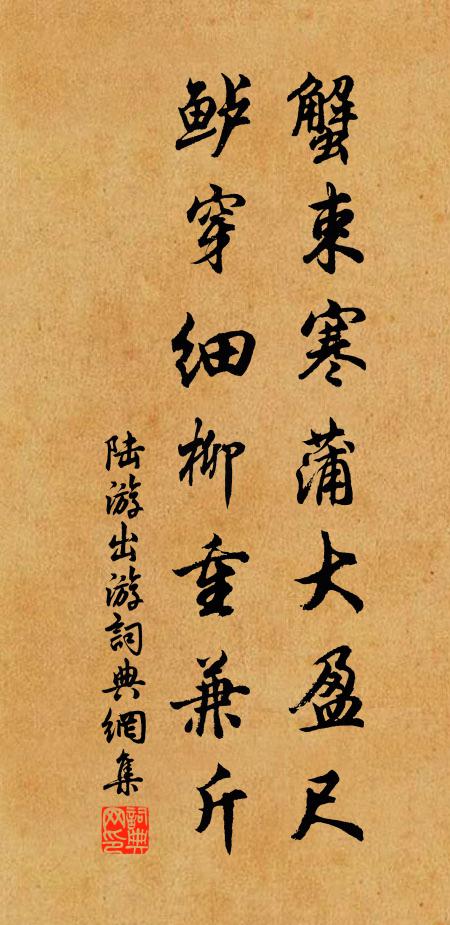 蟹束寒蒲大盈尺
鲈穿细柳重兼斤
陆游出游詞典網集
詞典网印